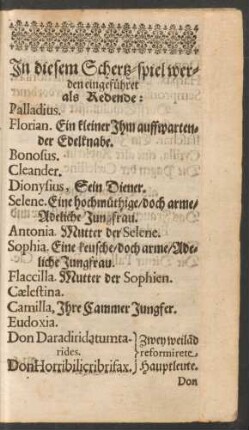 In diesem Schertz-spiel wer-
den eingeführet
als Redende:
Palladius.
Florian. Ein kleiner Ihm auffwarten-
der Edelknabe.
Bonosus.
Cleander.
Dionysius, Sein Diener.
Selene. Eine hochmüthige/doch arme/
Adeliche Jungfrau.
Antonia. Mutter der Selene.
Sophia. Eine keusche/doch arme/Ade-
liche Jungfrau.
Flaccilla. Mutter der Sophien.
Cælestina.
Camilla, Ihre Cammer Jungfer.
Eudoxia.
Don Daradiridatumta- Zwey weiläd
rides. reformirete
Don Horribilicribrifax. Hauptleute.
Don